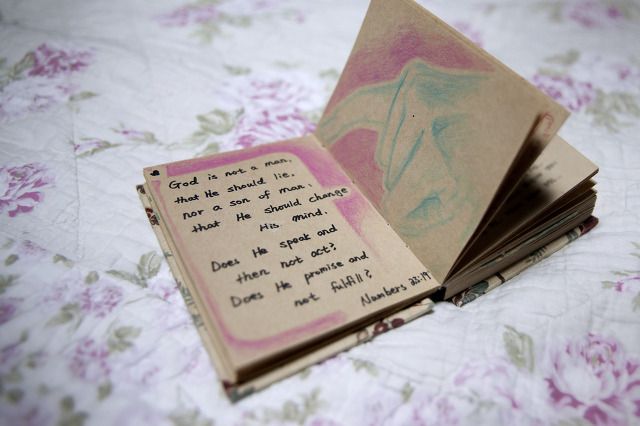 God is not a man,
that He should lie,
nor a son of man,
that He should change
His mind.
Does He speak and
then not act?
Does He promise and
not fulfill?
Numbers 23:19